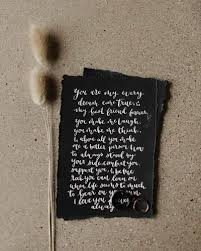 You are my every
dream come true, &
my best friend forever
you make me laugh,
you make me think,
& above all you make
me a better person. Vow
to always stand by
your side. comfort you,
support you, & be the
rock you can lean on
when life seems to much
to bear on your own
I love you
always